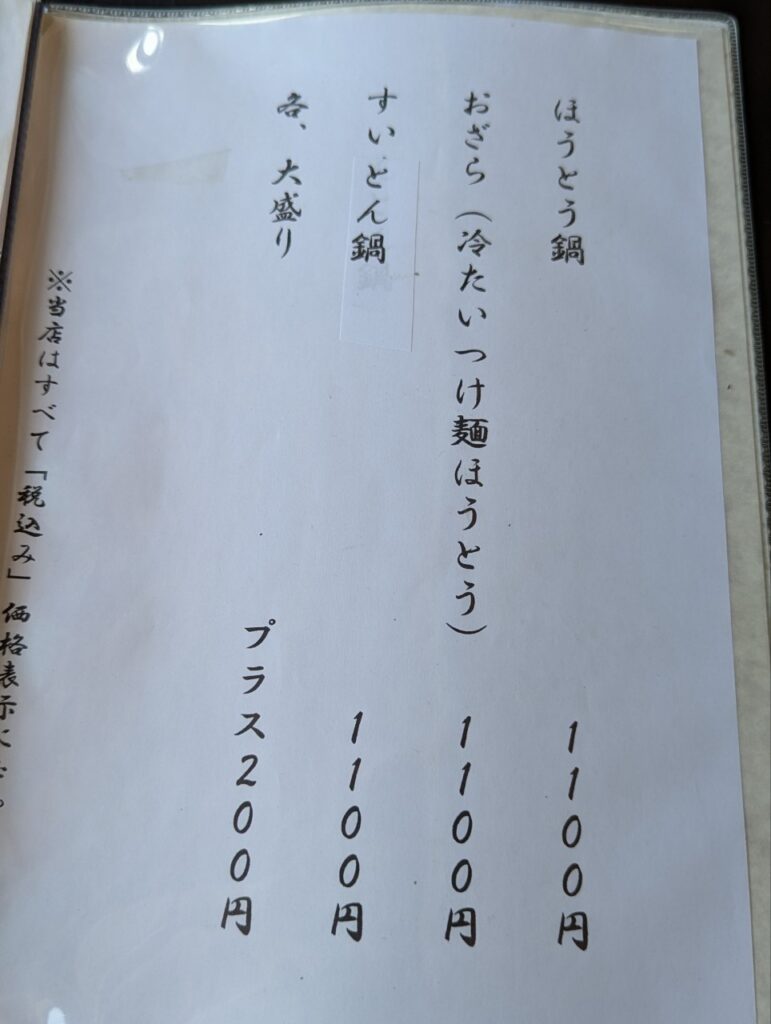 ほうとう鍋 1100円
おざら(冷たいつけ麺ほうとう) 1100円
すいとん鍋 1100円
各、大盛り プラス200円
※当店はすべて「税込み」価格表示